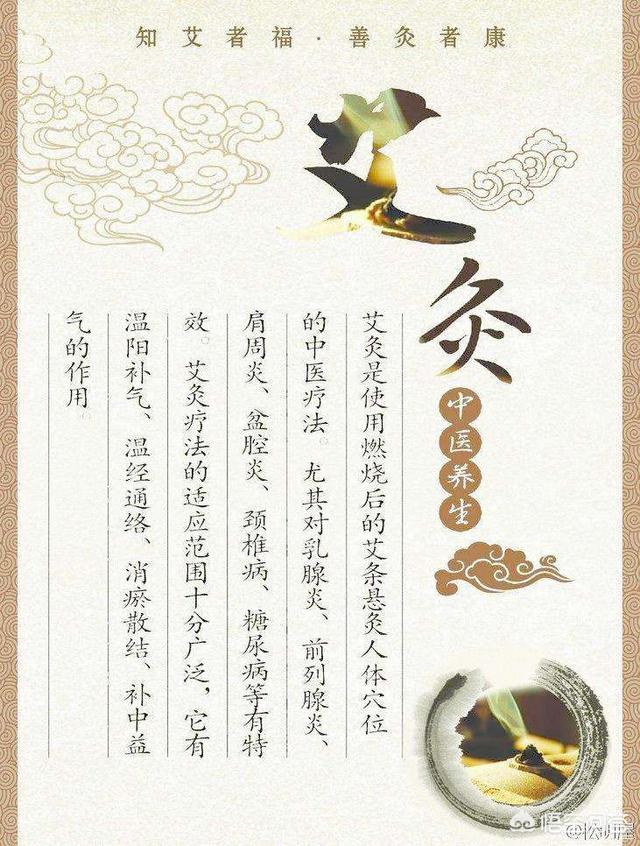 知艾者福·善灸者康
艾灸
中医养生
艾灸是使用燃烧后的艾条悬灸人体穴位
的中医疗法。尤其对乳腺炎、前列腺炎、
肩周炎、盆腔炎、颈椎病、糖尿病等有特
效。艾灸疗法的适应范围十分广泛，它有
温阳补气、温经通络、消瘀散结、补中益
气的作用。